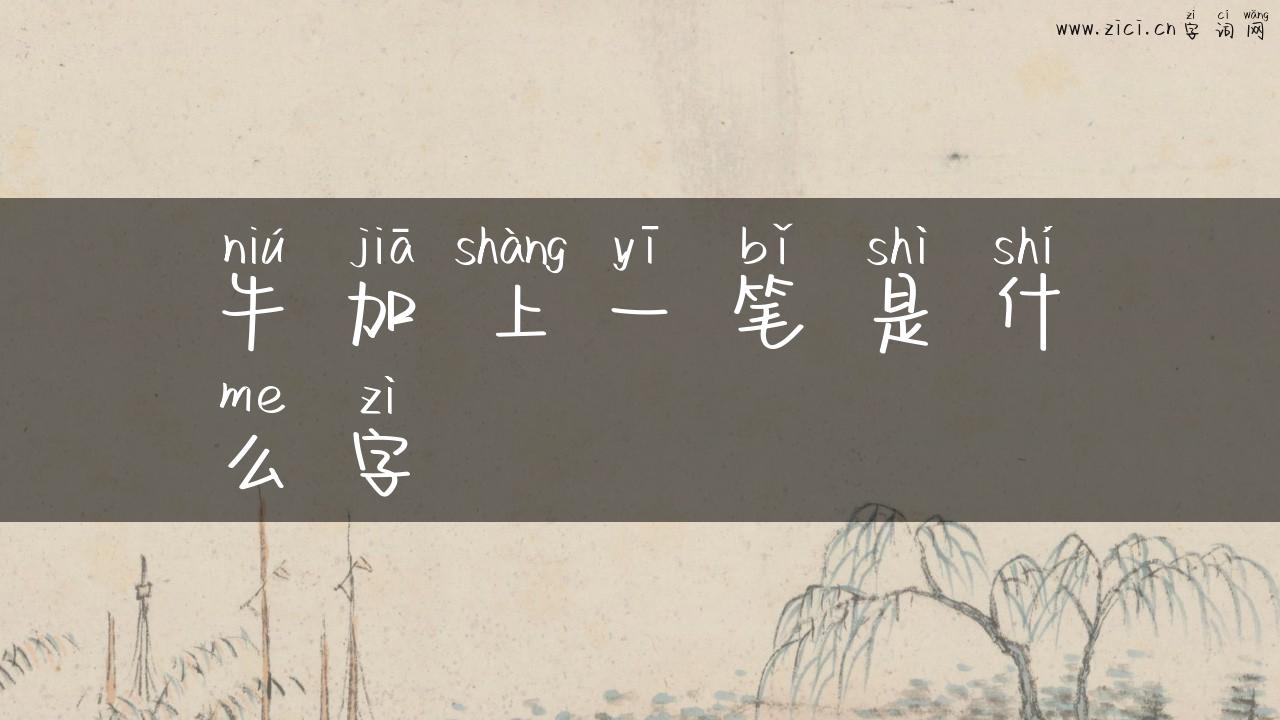 zì cí wǎng
www.zici.cn 字词网
niú jiā shàng yī bǐ shì shí
牛加上一笔是什
me zì
么字